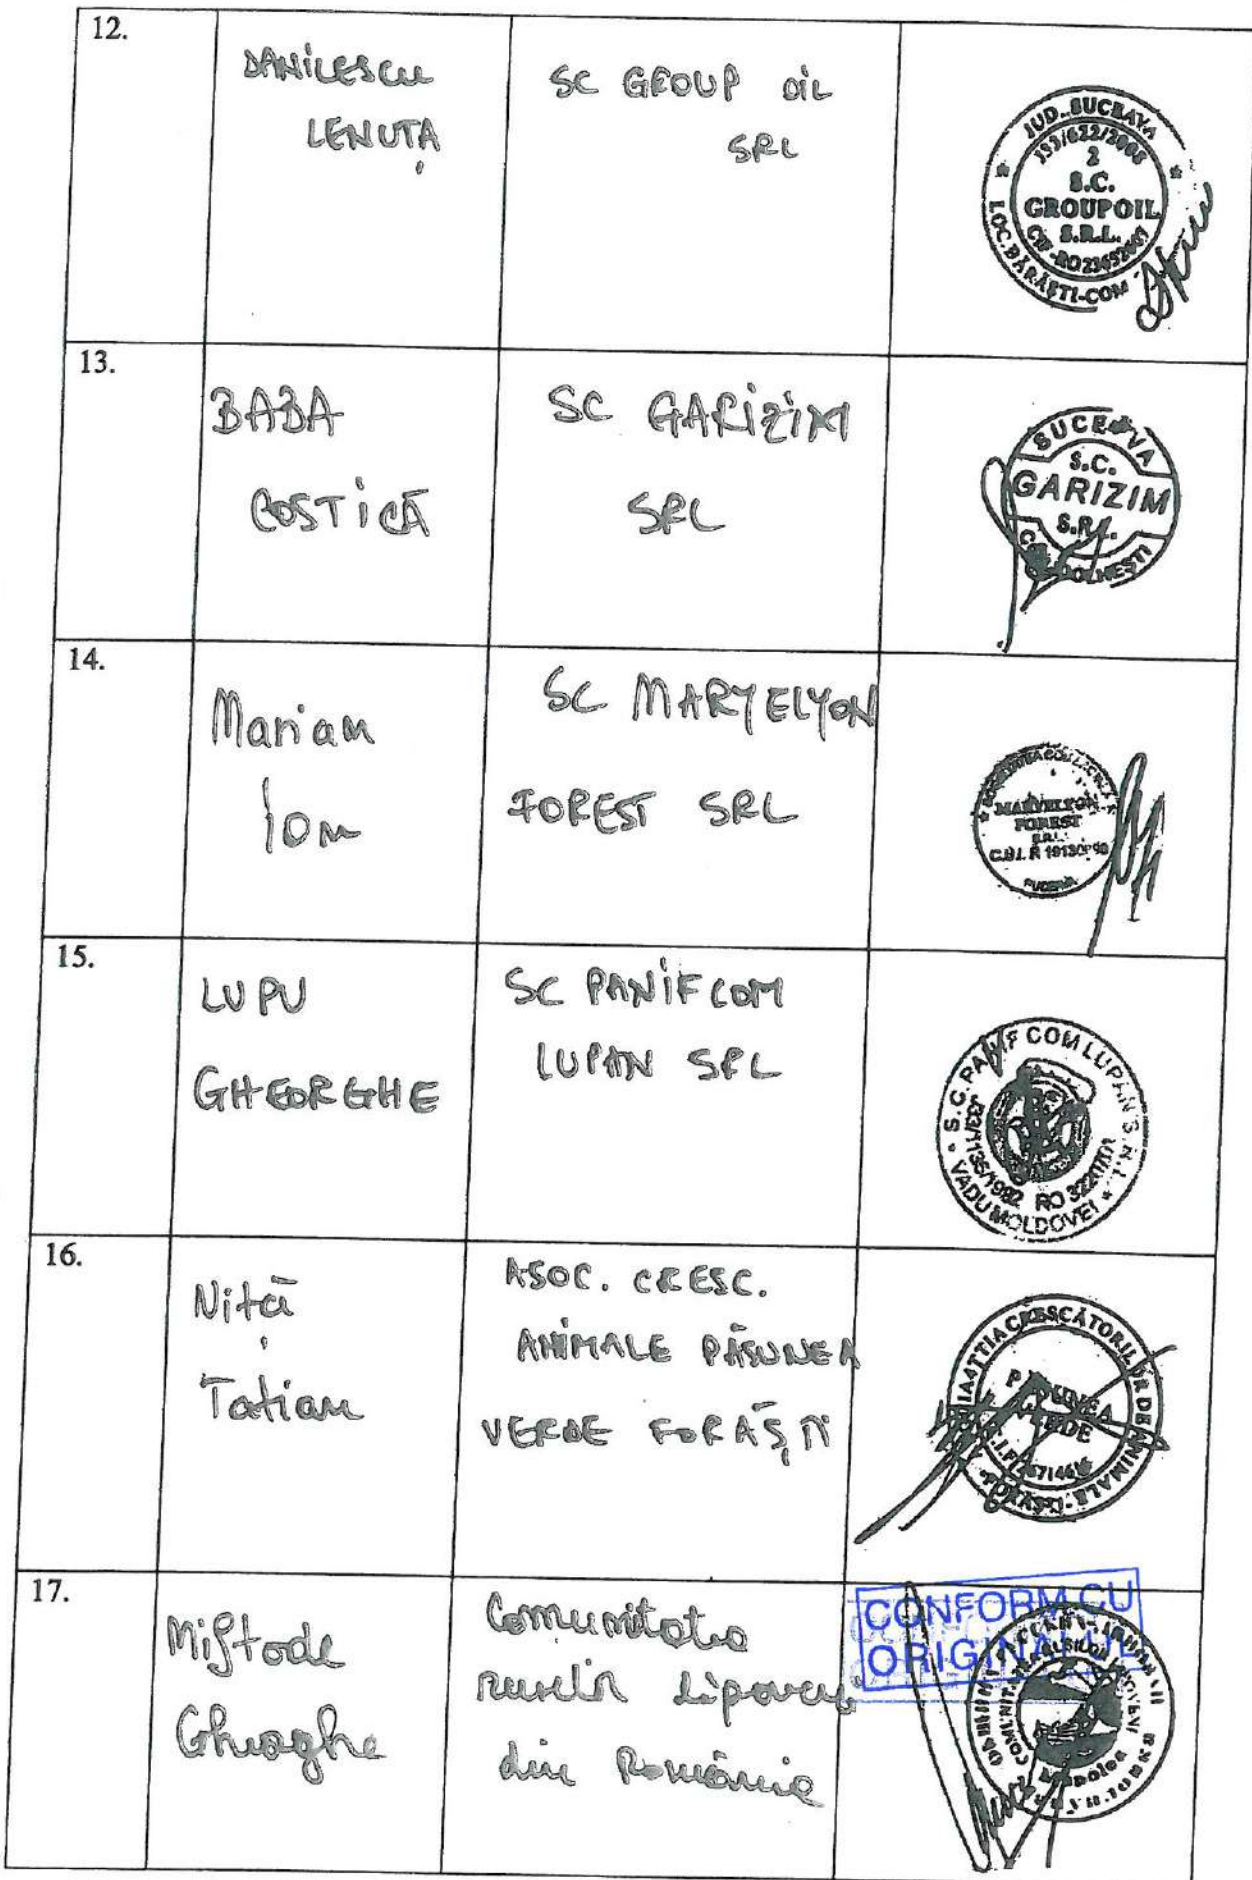 12.
DANILESCU
LENUȚA
SC GROUP OIL
SRL
JUD. SUCEAVA
2
S.C.
GROUPOIL
S.R.L.
LOC. BĂRĂȘTI-COM
13.
BABA
COSTICĂ
SC GARIZIM
SRL
SUCEAVA
S.C.
GARIZIM
S.R.L.
DOLHEȘTI
14.
Marian
Ion
SC MARYELYON
FOREST SRL
MARYELYON
FOREST
S.R.L.
15.
LUPU
GHEORGHE
SC PANIFCOM
LUPAN SRL
S.C. PANIF COM LUPAN S.R.L.
VADU MOLDOVEI
16.
Niță
Tatian
ASOC. CRESC.
ANIMALE PĂȘUNEA
VERDE FORĂȘTI
CRESCĂTORILOR DE ANIMALE
FORĂȘTI
17.
Miftode
Gheoghe
Comunitatea
rusilor Lipoveni
din România
CONFORM CU
ORIGINALUL